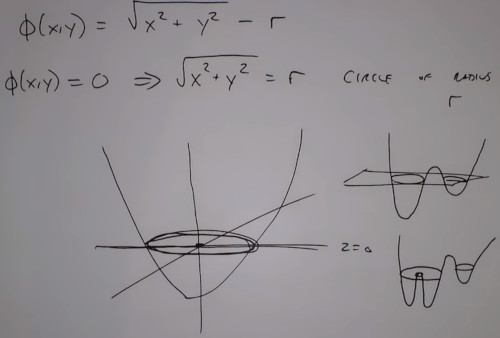 ϕ(x,y) = √x² + y² - r
ϕ(x,y) = 0 ⇒ √x²+y² = r CIRCLE OF RADIUS
r
z=0